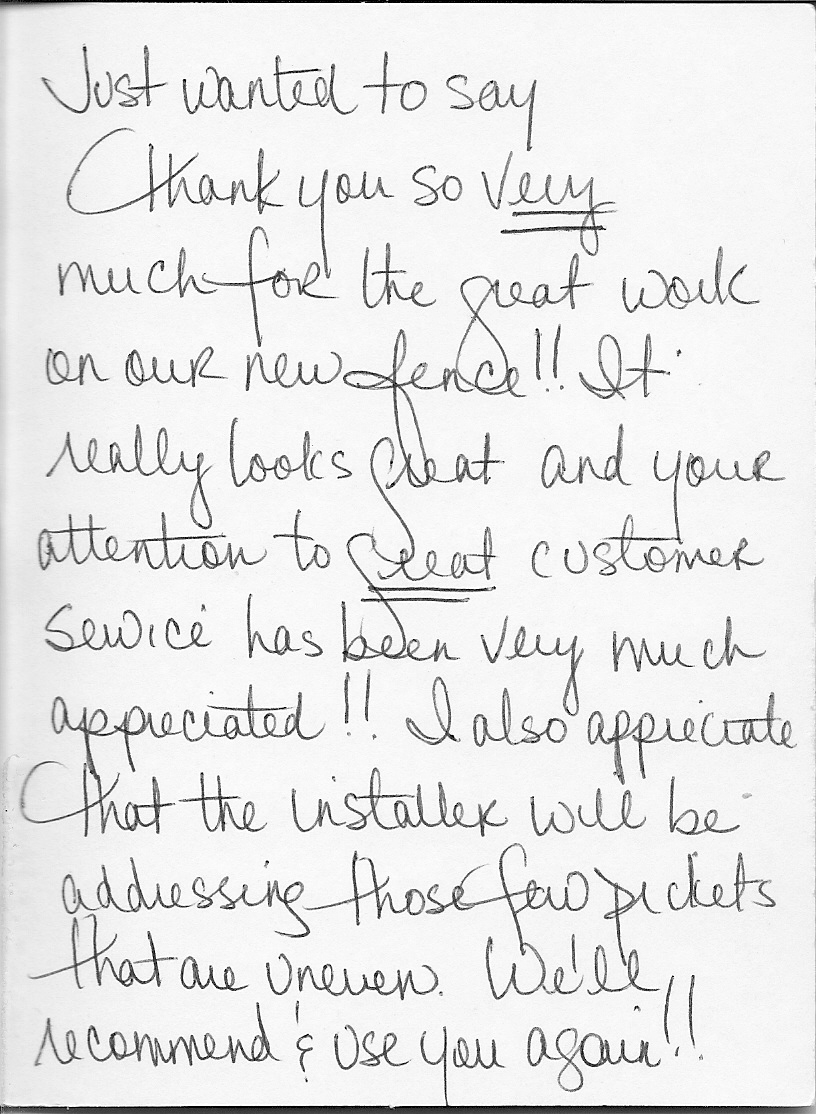 Just wanted to say
thank you so very
much for the great work
on our new fence!! It
really looks great and your
attention to great customer
service has been very much
appreciated!! I also appreciate
that the installer will be
addressing those few pickets
that are uneven. We'll
recommend & use you again!!